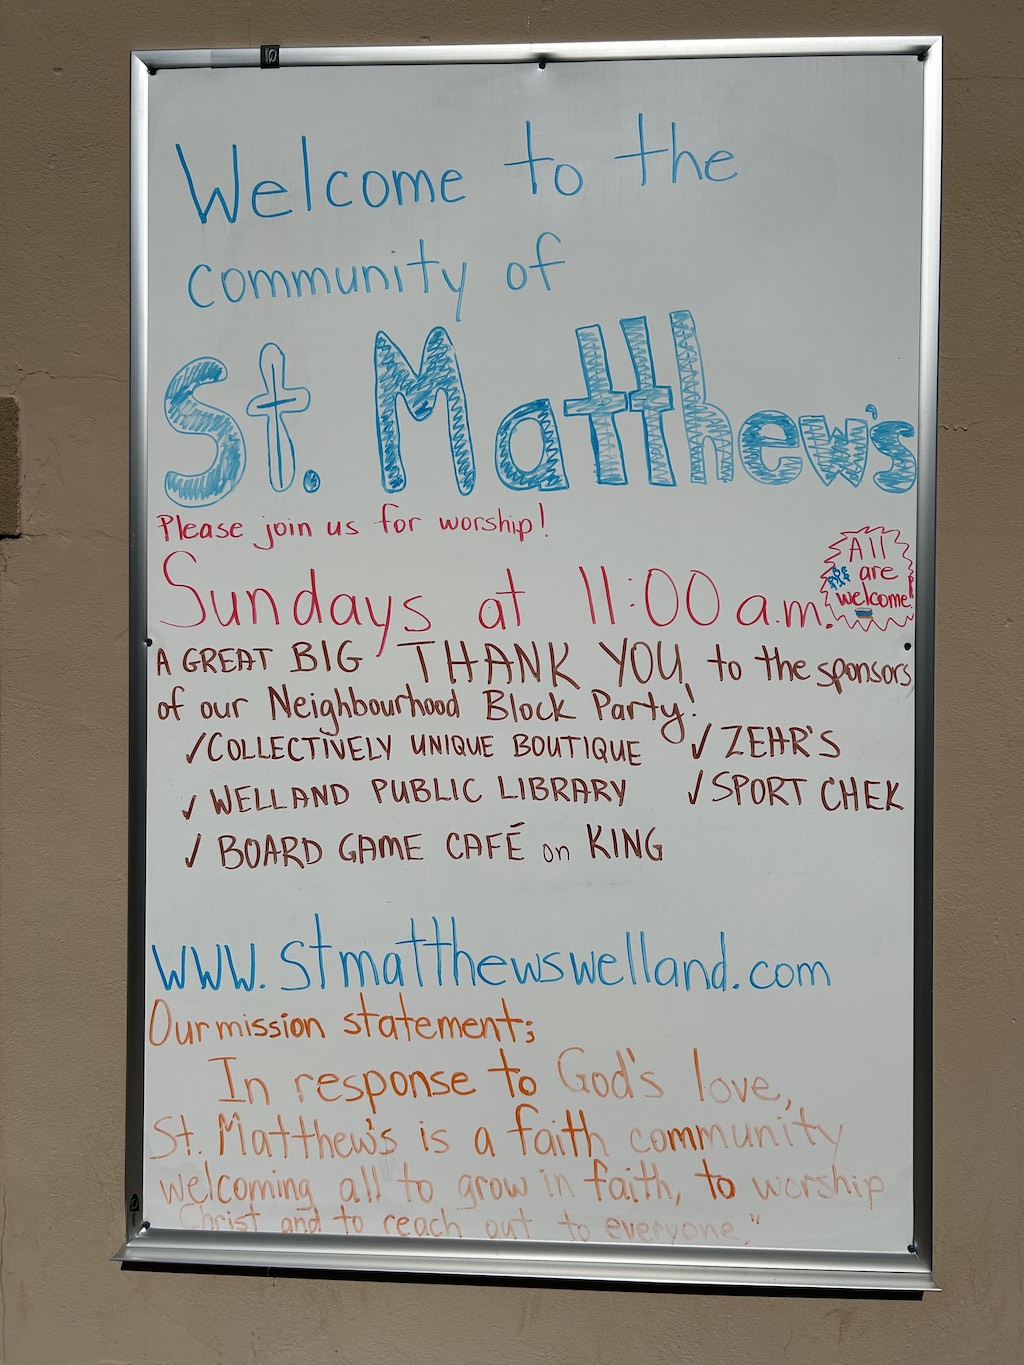 Welcome to the
community of
St. Matthew's
Please join us for worship!
Sundays at 11:00 a.m.
All
are
welcome!
A GREAT BIG THANK YOU to the sponsors
of our Neighbourhood Block Party!
✓COLLECTIVELY UNIQUE BOUTIQUE ✓ZEHR'S
✓ WELLAND PUBLIC LIBRARY ✓SPORT CHEK
✓ BOARD GAME CAFÉ on KING
www.stmatthewswelland.com
Our mission statement;
In response to God's love,
St. Matthew's is a faith community
welcoming all to grow in faith, to worship
Christ and to reach out to everyone."